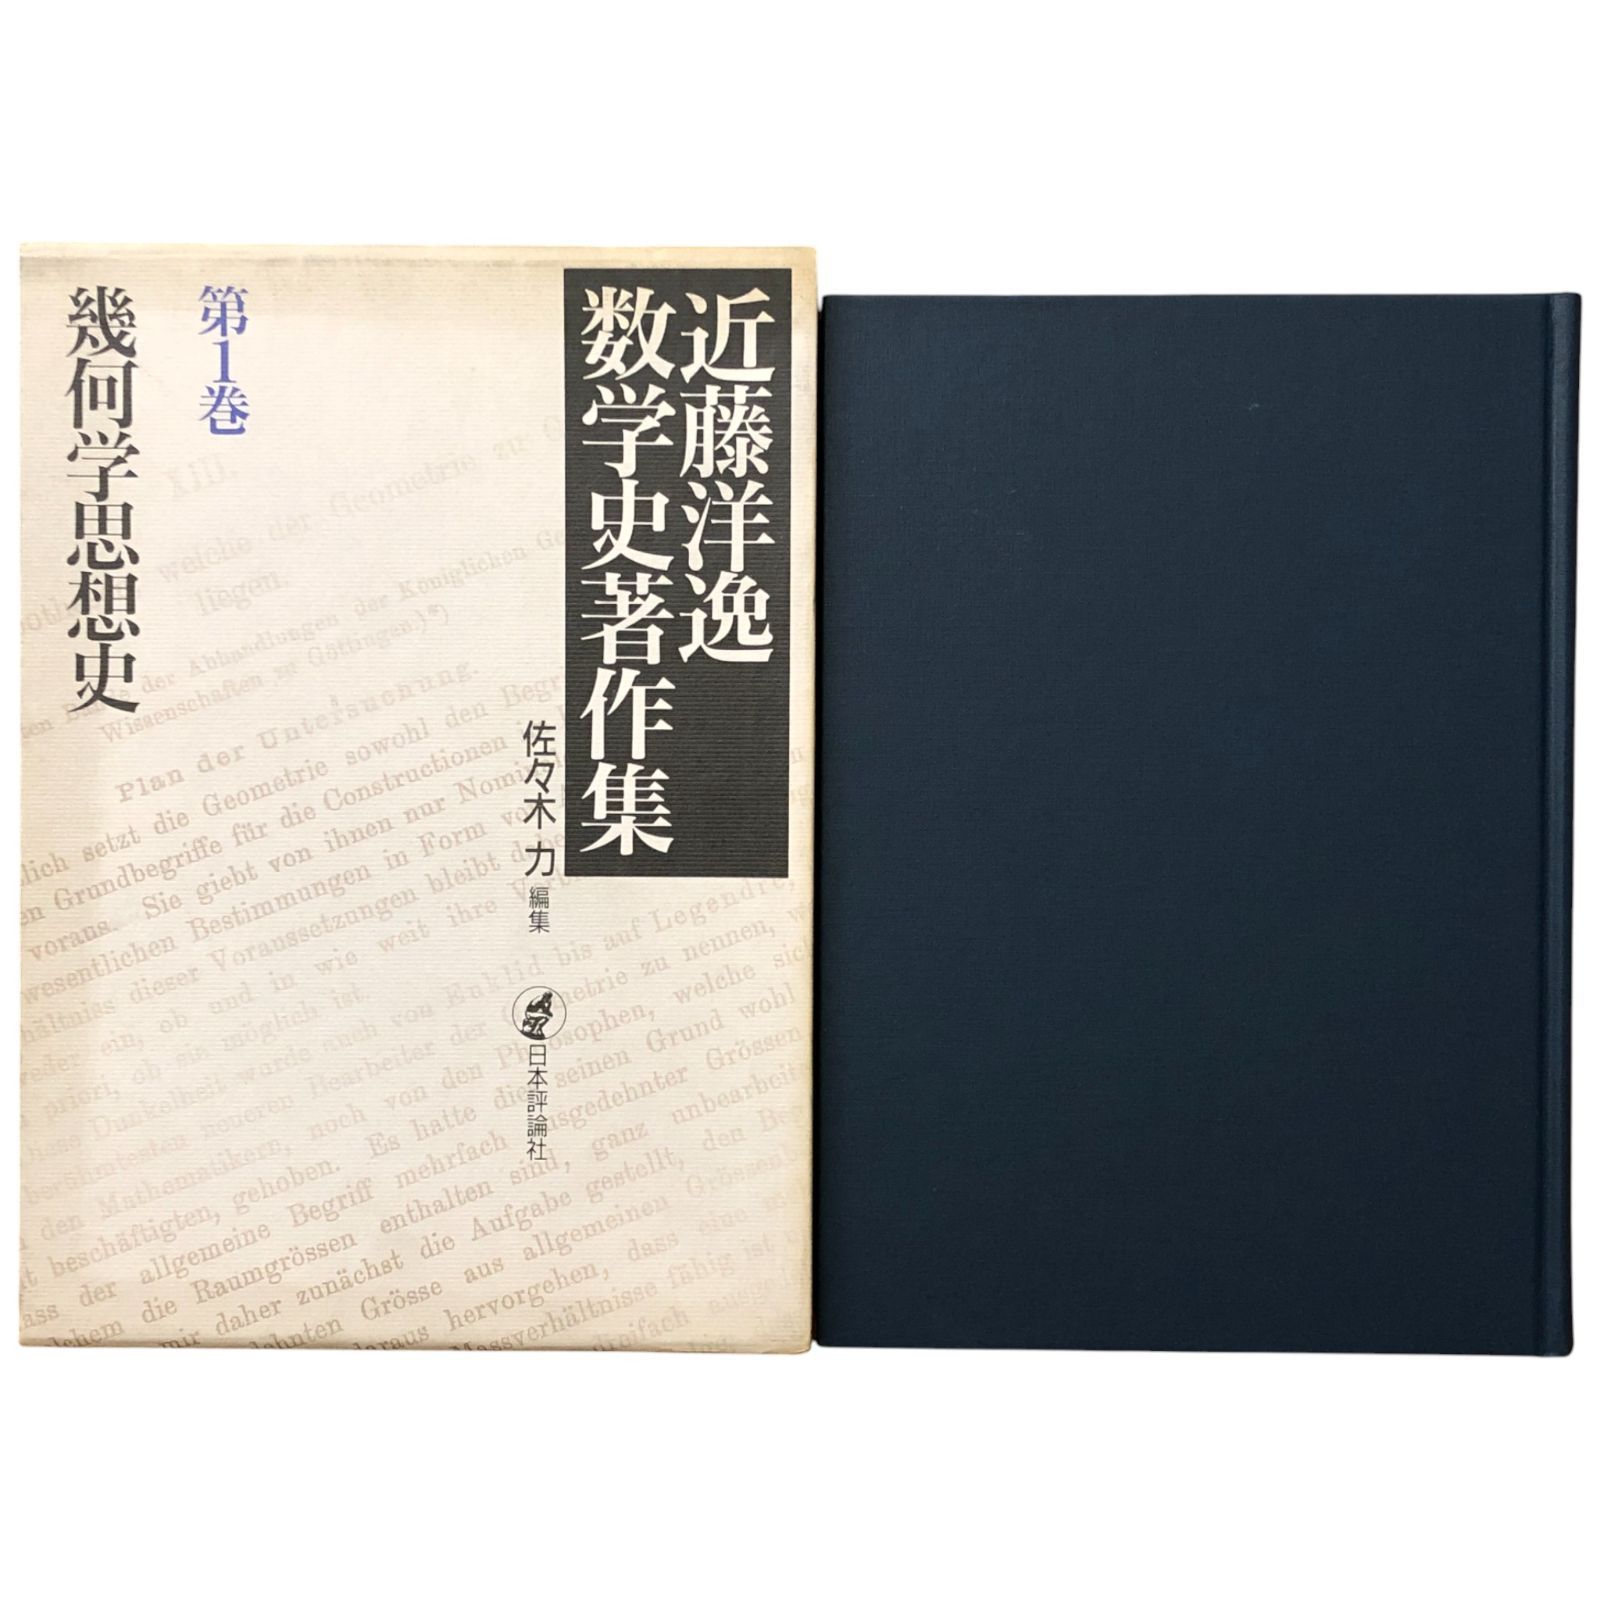 近藤洋逸
数学史著作集
第1巻
幾何学思想史
佐々木力
編集
日本評論社
XIII.
welche der Geometrie zu
liegen.
der Abhandlungen der Königlichen
Wissenschaften zu Göttingen.)*)
Plan der Untersuchung.
setzt die Geometrie sowohl den
Grundbegriffe für die Constructionen
voraus. Sie giebt von ihnen nur
wesentlichen Bestimmungen in Form
dieser Voraussetzungen bleibt
ein, ob und in wie weit ihre
priori, ob sie möglich ist.
Dunkelheit wurde auch von Euklid bis auf Legendre,
berühmtesten neueren Bearbeiter der Geometrie zu nennen,
den Mathematikern, noch von den Philosophen, welche sich
beschäftigten, gehoben. Es hatte dies seinen Grund wohl
der allgemeine Begriff mehrfach ausgedehnter Grössen
die Raumgrössen enthalten sind, ganz unbearbeitet
mir daher zunächst die Aufgabe gestellt, den
Grösse aus allgemeinen
hervorgehen, dass eine
Massverhältnisse fähig ist
dreifach